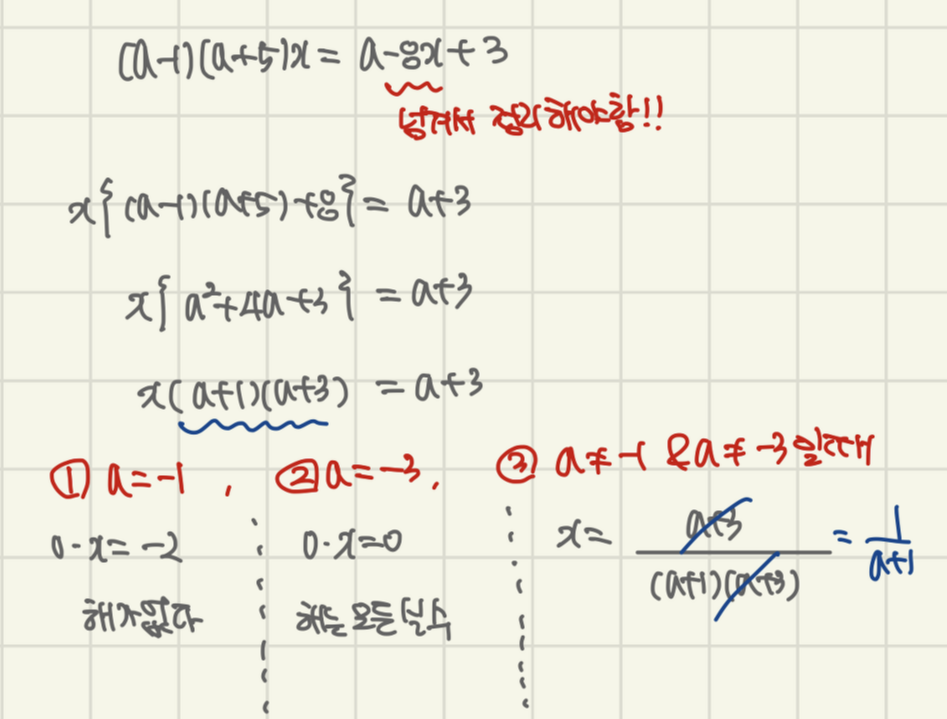 (a-1)(a+5)x = a-8x+3
넘겨서 정리해야함!!
x{(a-1)(a+5)+8} = a+3
x{a²+4a+3} = a+3
x(a+1)(a+3) = a+3
① a=-1, ② a=-3, ③ a≠-1 & a≠-3일때
0·x=-2
0·x=0
x= a+3/(a+1)(a+3) = 1/a+1
해가없다
해는 모든 실수